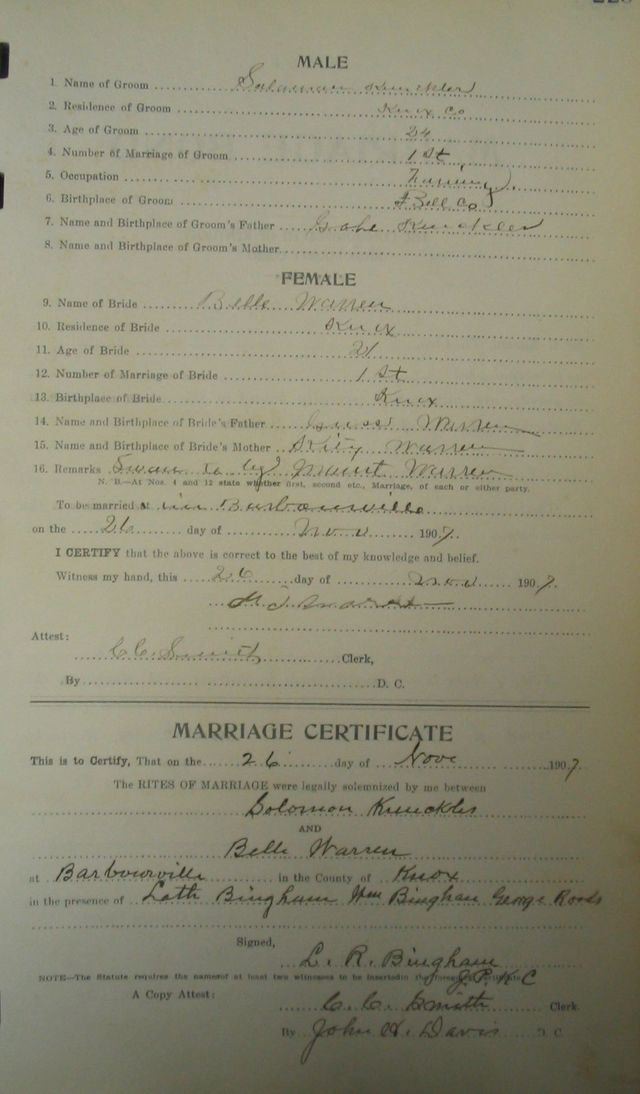 MALE
1. Name of Groom Solomon Knuckles
2. Residence of Groom Knox Co
3. Age of Groom 24
4. Number of Marriage of Groom 1st
5. Occupation Farming
6. Birthplace of Groom Bell Co
7. Name and Birthplace of Groom's Father Gabe Knuckles
8. Name and Birthplace of Groom's Mother
FEMALE
9. Name of Bride Belle Warren
10. Residence of Bride Knox
11. Age of Bride 21
12. Number of Marriage of Bride 1st
13. Birthplace of Bride Knox
14. Name and Birthplace of Bride's Father Warren
15. Name and Birthplace of Bride's Mother Kity Warren
16. Remarks Swan to by Warren
N. B.—At Nos. 4 and 12 state whether first, second etc., Marriage, of each or either party.
To be married at in Barbourville
on the 26 day of Nov 1907.
I CERTIFY that the above is correct to the best of my knowledge and belief.
Witness my hand, this 26 day of Nov 1907.
Attest:
C C. Smith Clerk,
By D. C.
MARRIAGE CERTIFICATE
This is to Certify, That on the 26 day of Nov 1907
The RITES OF MARRIAGE were legally solemnized by me between
Solomon Knuckles
AND
Belle Warren
at Barbourville in the County of Knox
in the presence of Bingham Wm Bingham George
Signed,
L. R. Bingham
J. P. K C
NOTE—The Statute requires the names of at least two witnesses to be inserted in the
A Copy Attest:
C. C. Smith Clerk
By John H. Davis D. C.